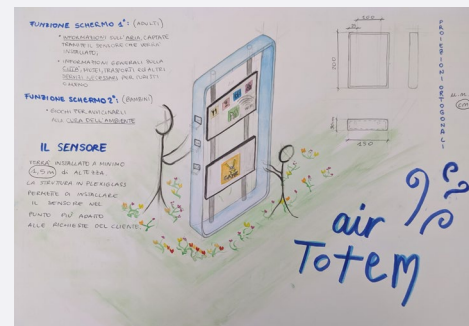 FUNZIONE SCHERMO 1°: (ADULTI)
• INFORMAZIONI SULL'ARIA, CAPTATE
TRAMITE IL SENSORE CHE VERRÀ
INSTALLATO;
• INFORMAZIONI GENERALI SULLA
CITTÀ, METEO, TRASPORTI ED ALTRI
SERVIZI NECESSARI PER I DIRITTI
FUNZIONE SCHERMO 2°: (BAMBINI)
• GIOCHI PER AVVICINARLI
ALLA CURA DELL'AMBIENTE
IL SENSORE
VERRÀ INSTALLATO A MINIMO
1,5 m di ALTEZZA.
LA STRUTTURA IN PLEXIGLASS
PERMETTE DI INSTALLARE
IL SENSORE NEL
PUNTO PIÙ ADATTO
ALLE RICHIESTE DEL CLIENTE
GAME
100
200
130
PROIEZIONI ORTOGONALI
U.M.
cm
air
Totem